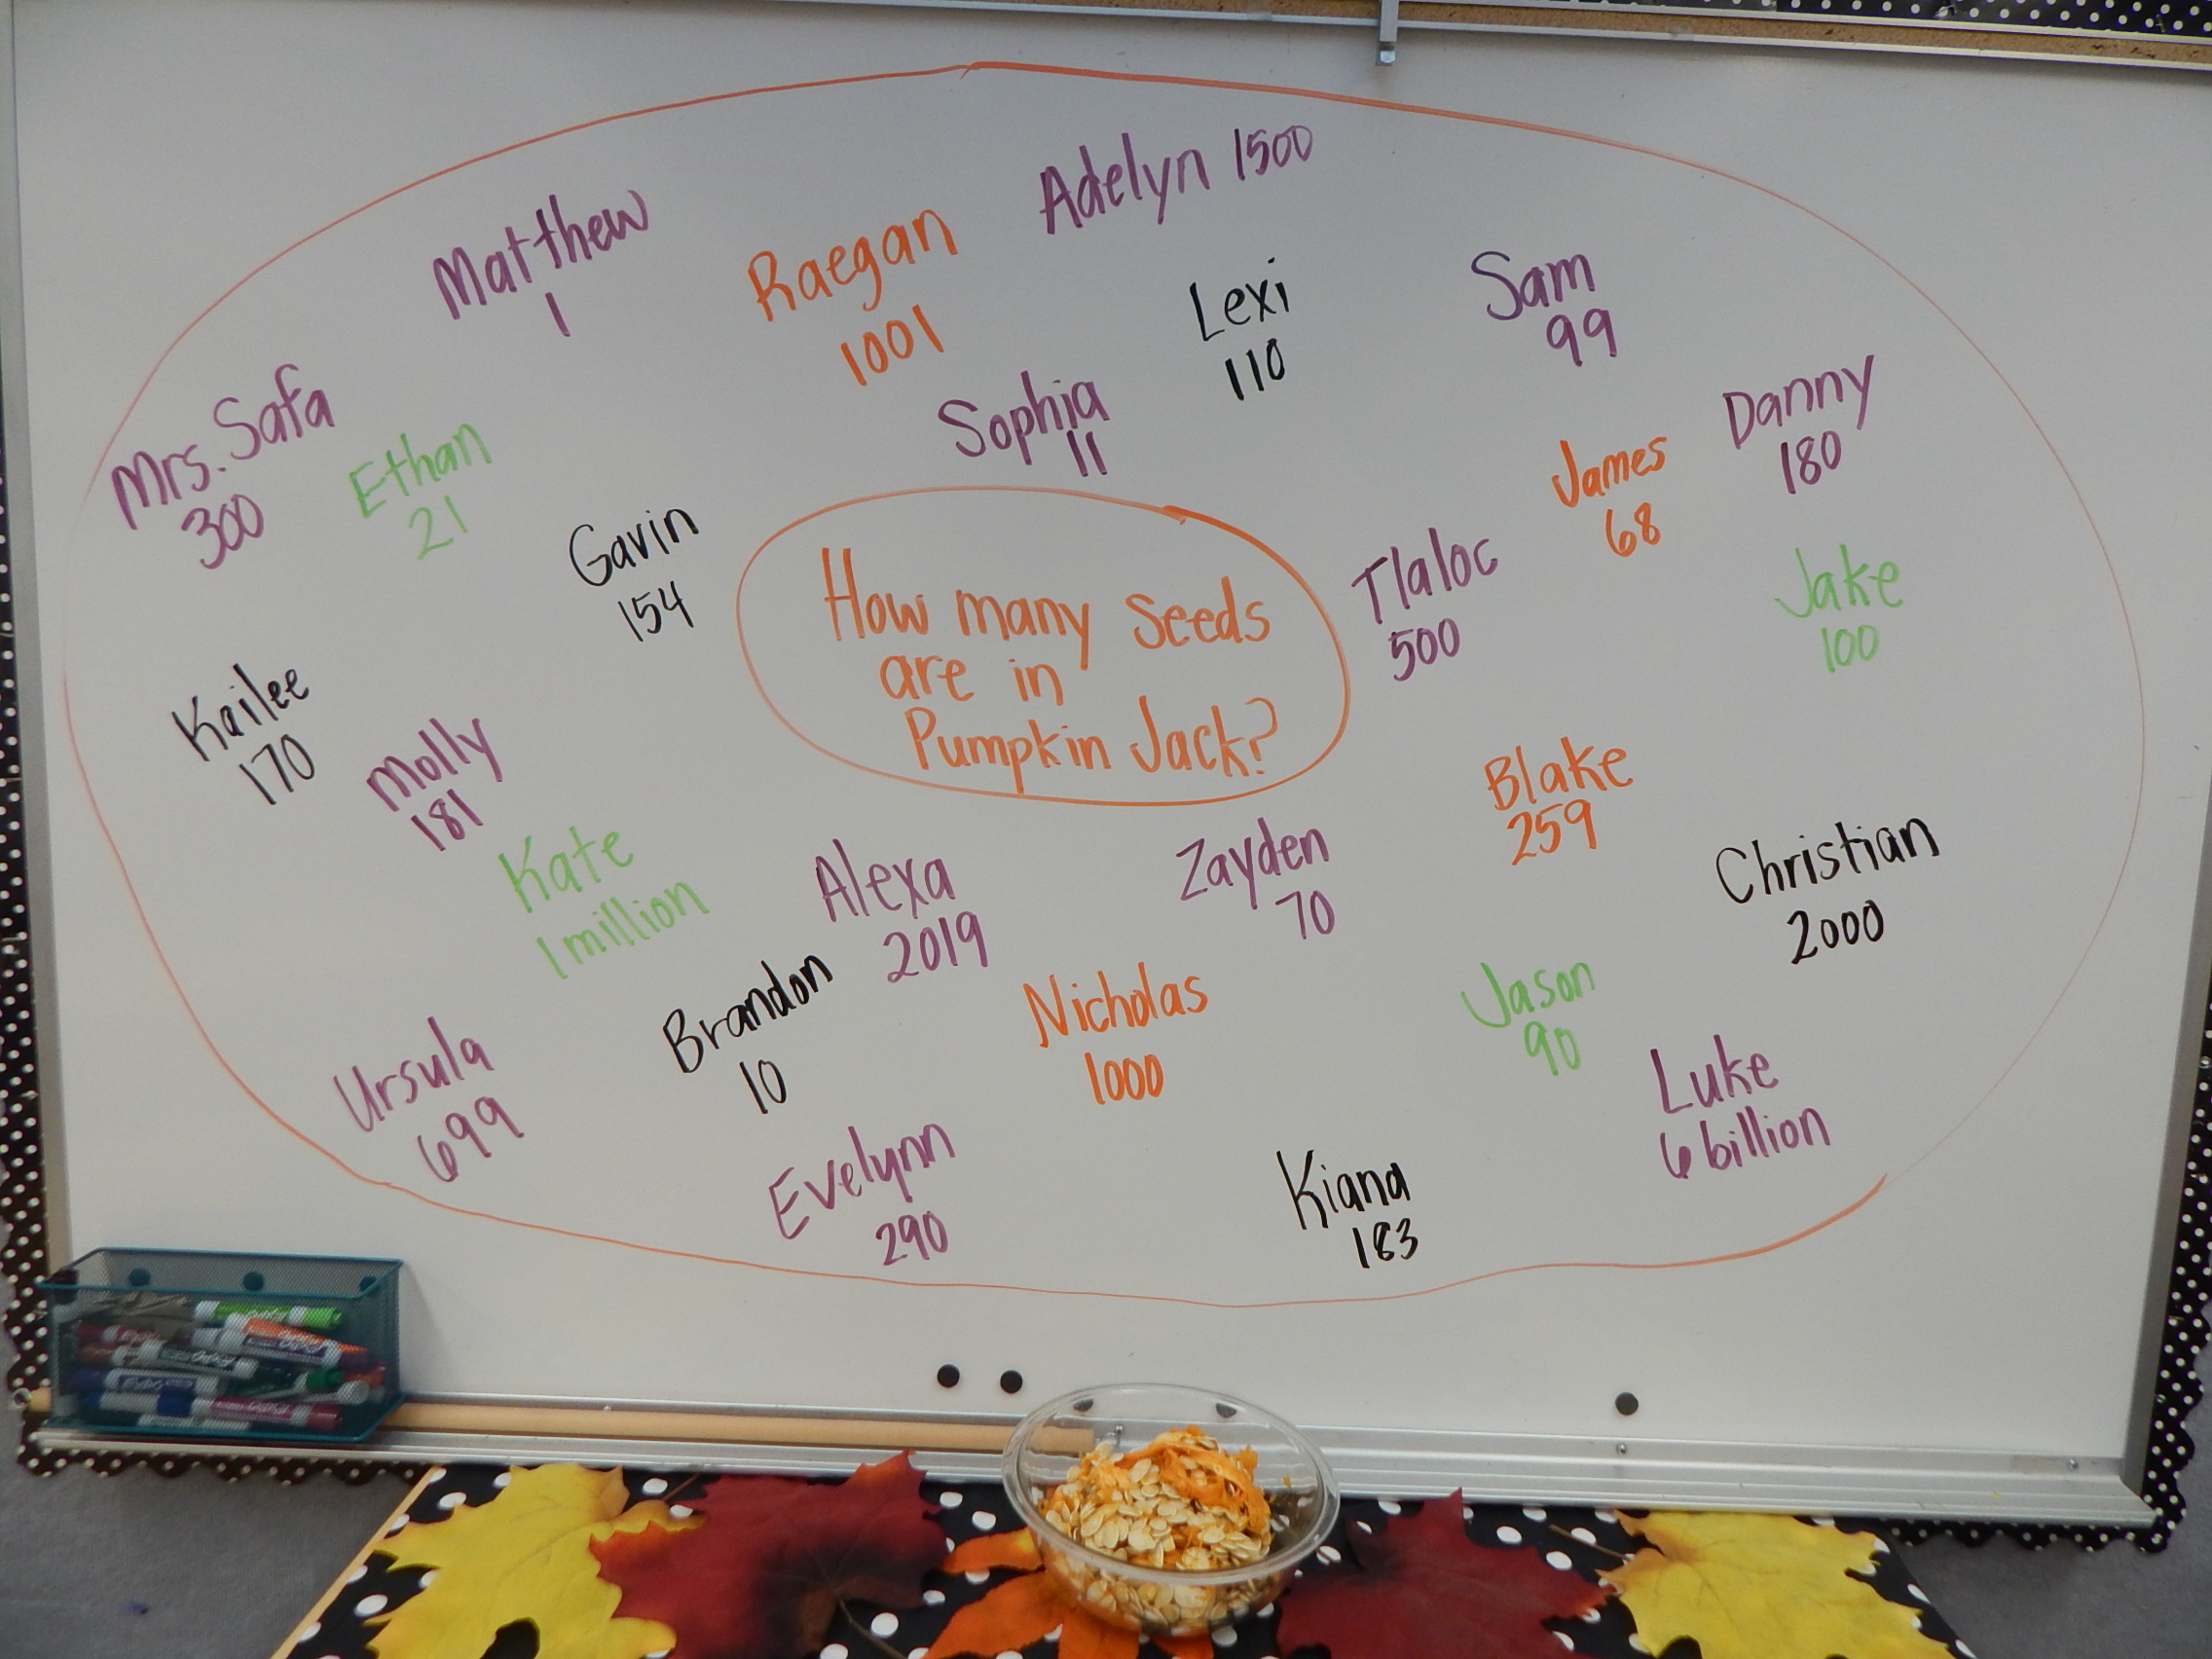 Adelyn 1500
Matthew
1
Raegan
1001
Lexi
110
Sam
99
Mrs. Safa
300
Ethan
21
Sophia
11
James
68
Danny
180
Gavin
154
How many Seeds
are in
Pumpkin Jack?
Tlaloc
500
Jake
100
Kailee
170
Molly
181
Kate
1 million
Alexa
2019
Zayden
70
Blake
259
Christian
2000
Ursula
699
Brandon
10
Nicholas
1000
Jason
90
Luke
6 billion
Evelynn
290
Kiana
183